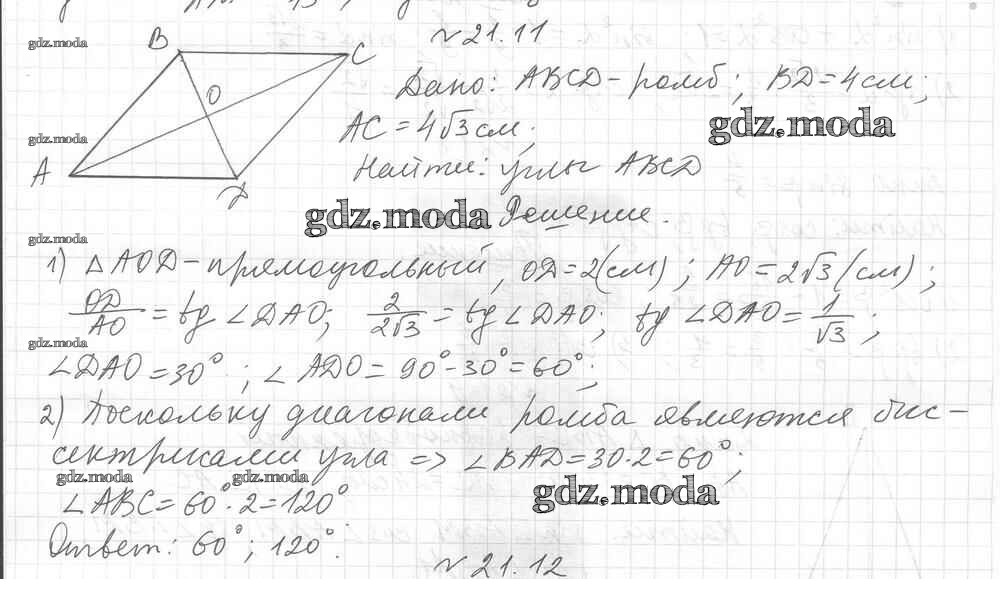 № 21.11
B
C
O
A
D
Дано: ABCD - ромб; BD = 4 см;
AC = 4√3 см;
Найти: углы ABCD
Решение.
1) △AOD - прямоугольный, OD = 2 (см); AO = 2√3 (см);
OD/AO = tg ∠DAO; 2/2√3 = tg ∠DAO; tg ∠DAO = 1/√3;
∠DAO = 30°; ∠ADO = 90° - 30° = 60°;
2) Поскольку диагонали ромба являются бис-
сектрисами угла => ∠BAD = 30·2 = 60°;
∠ABC = 60°·2 = 120°
Ответ: 60°; 120°.
№ 21.12
gdz.moda
gdz.moda
gdz.moda
gdz.moda
gdz.moda
gdz.moda
gdz.moda
gdz.moda
gdz.moda